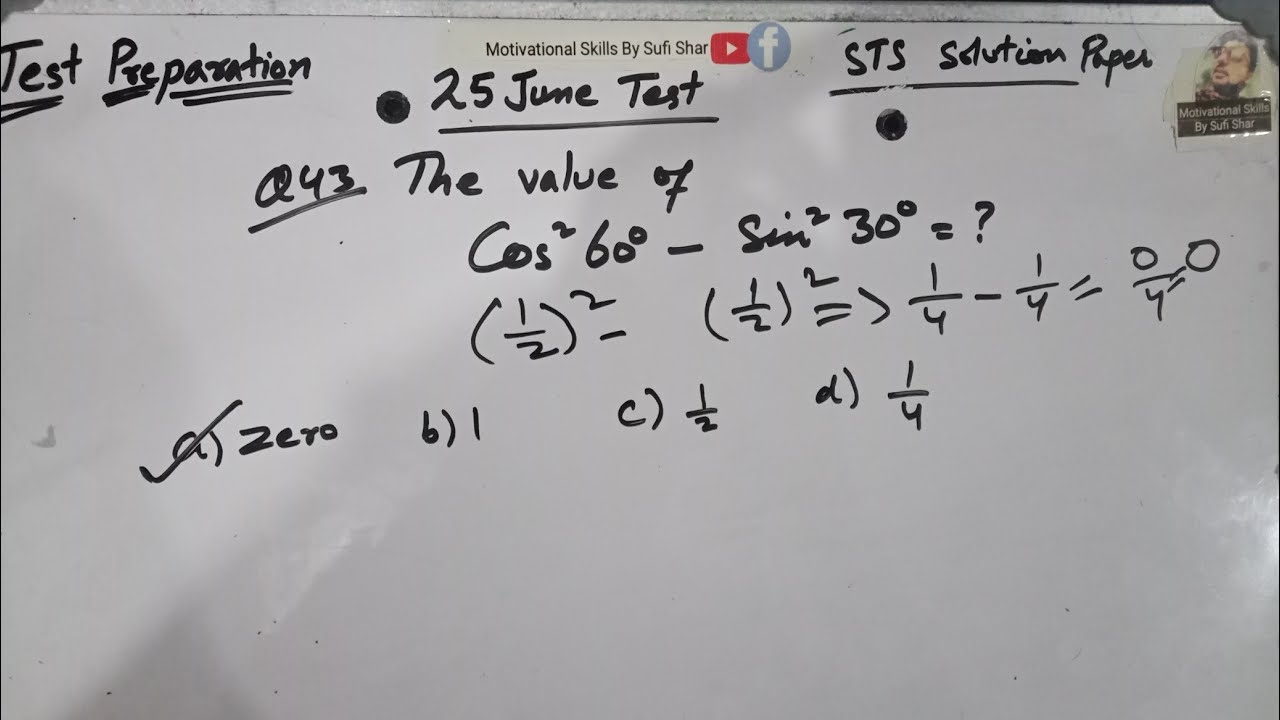 Test Preparation
Motivational Skills By Sufi Shar
STS Solution Paper
25 June Test
Motivational Skills
By Sufi Shar
Q43 The value of
Cos² 60° - Sin² 30° = ?
(1/2)² - (1/2)² => 1/4 - 1/4 = 0/4 = 0
a) Zero b) 1 c) 1/2 d) 1/4